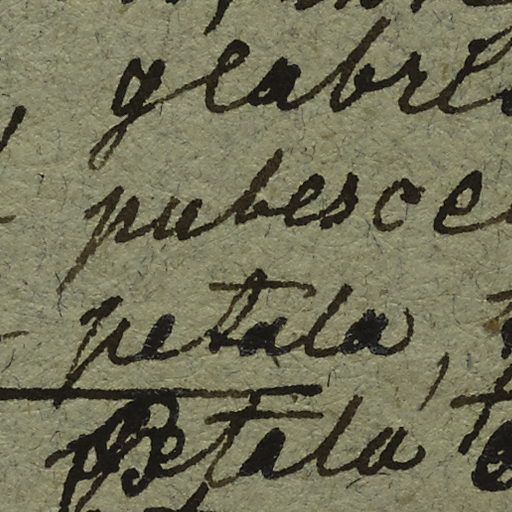 glabre
pubesce
petala,
Petala